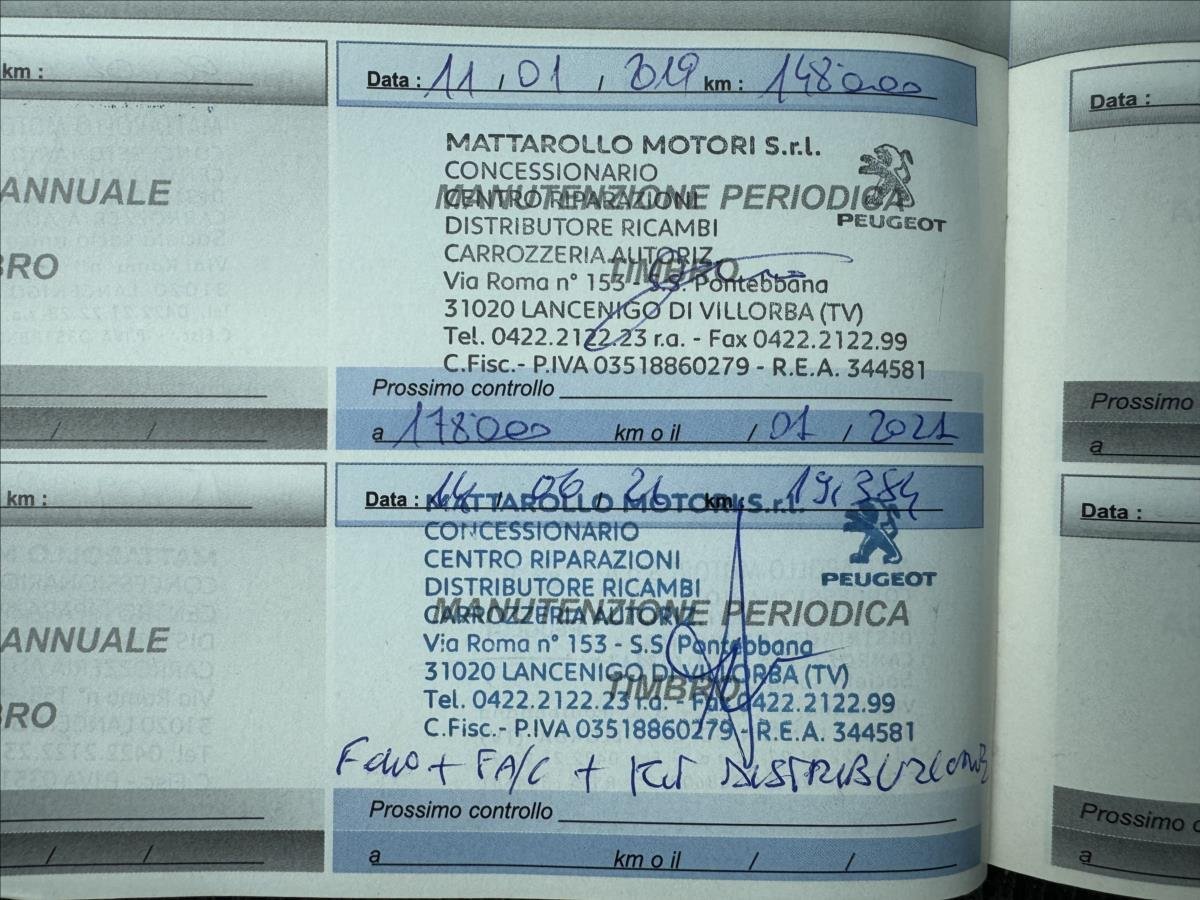 km :
ANNUALE
BRO
/ /
Data : 11 / 01 / 2019 km : 148000
MATTAROLLO MOTORI S.r.l.
CONCESSIONARIO
CENTRO RIPARAZIONI
MANUTENZIONE PERIODICA
DISTRIBUTORE RICAMBI
PEUGEOT
CARROZZERIA AUTORIZ.
TIMBRO
Via Roma n° 153 - S.S. Pontebbana
31020 LANCENIGO DI VILLORBA (TV)
Tel. 0422.2122.23 r.a. - Fax 0422.2122.99
C.Fisc.- P.IVA 03518860279 - R.E.A. 344581
Prossimo controllo
a 178000 km o il / 01 / 2021
km :
ANNUALE
BRO
/ /
Data : 14 / 06 / 21 km : 19,384
MATTAROLLO MOTORI S.r.l.
CONCESSIONARIO
CENTRO RIPARAZIONI
PEUGEOT
DISTRIBUTORE RICAMBI
CARROZZERIA AUTORIZ.
MANUTENZIONE PERIODICA
Via Roma n° 153 - S.S. Pontebbana
31020 LANCENIGO DI VILLORBA (TV)
TIMBRO
Tel. 0422.2122.23 r.a. - Fax 0422.2122.99
C.Fisc.- P.IVA 03518860279 - R.E.A. 344581
+ FA/C + KIT DISTRIBUZIONE
Prossimo controllo
a km o il / /
Data :
Prossimo
a
Data :
Prossimo c
a